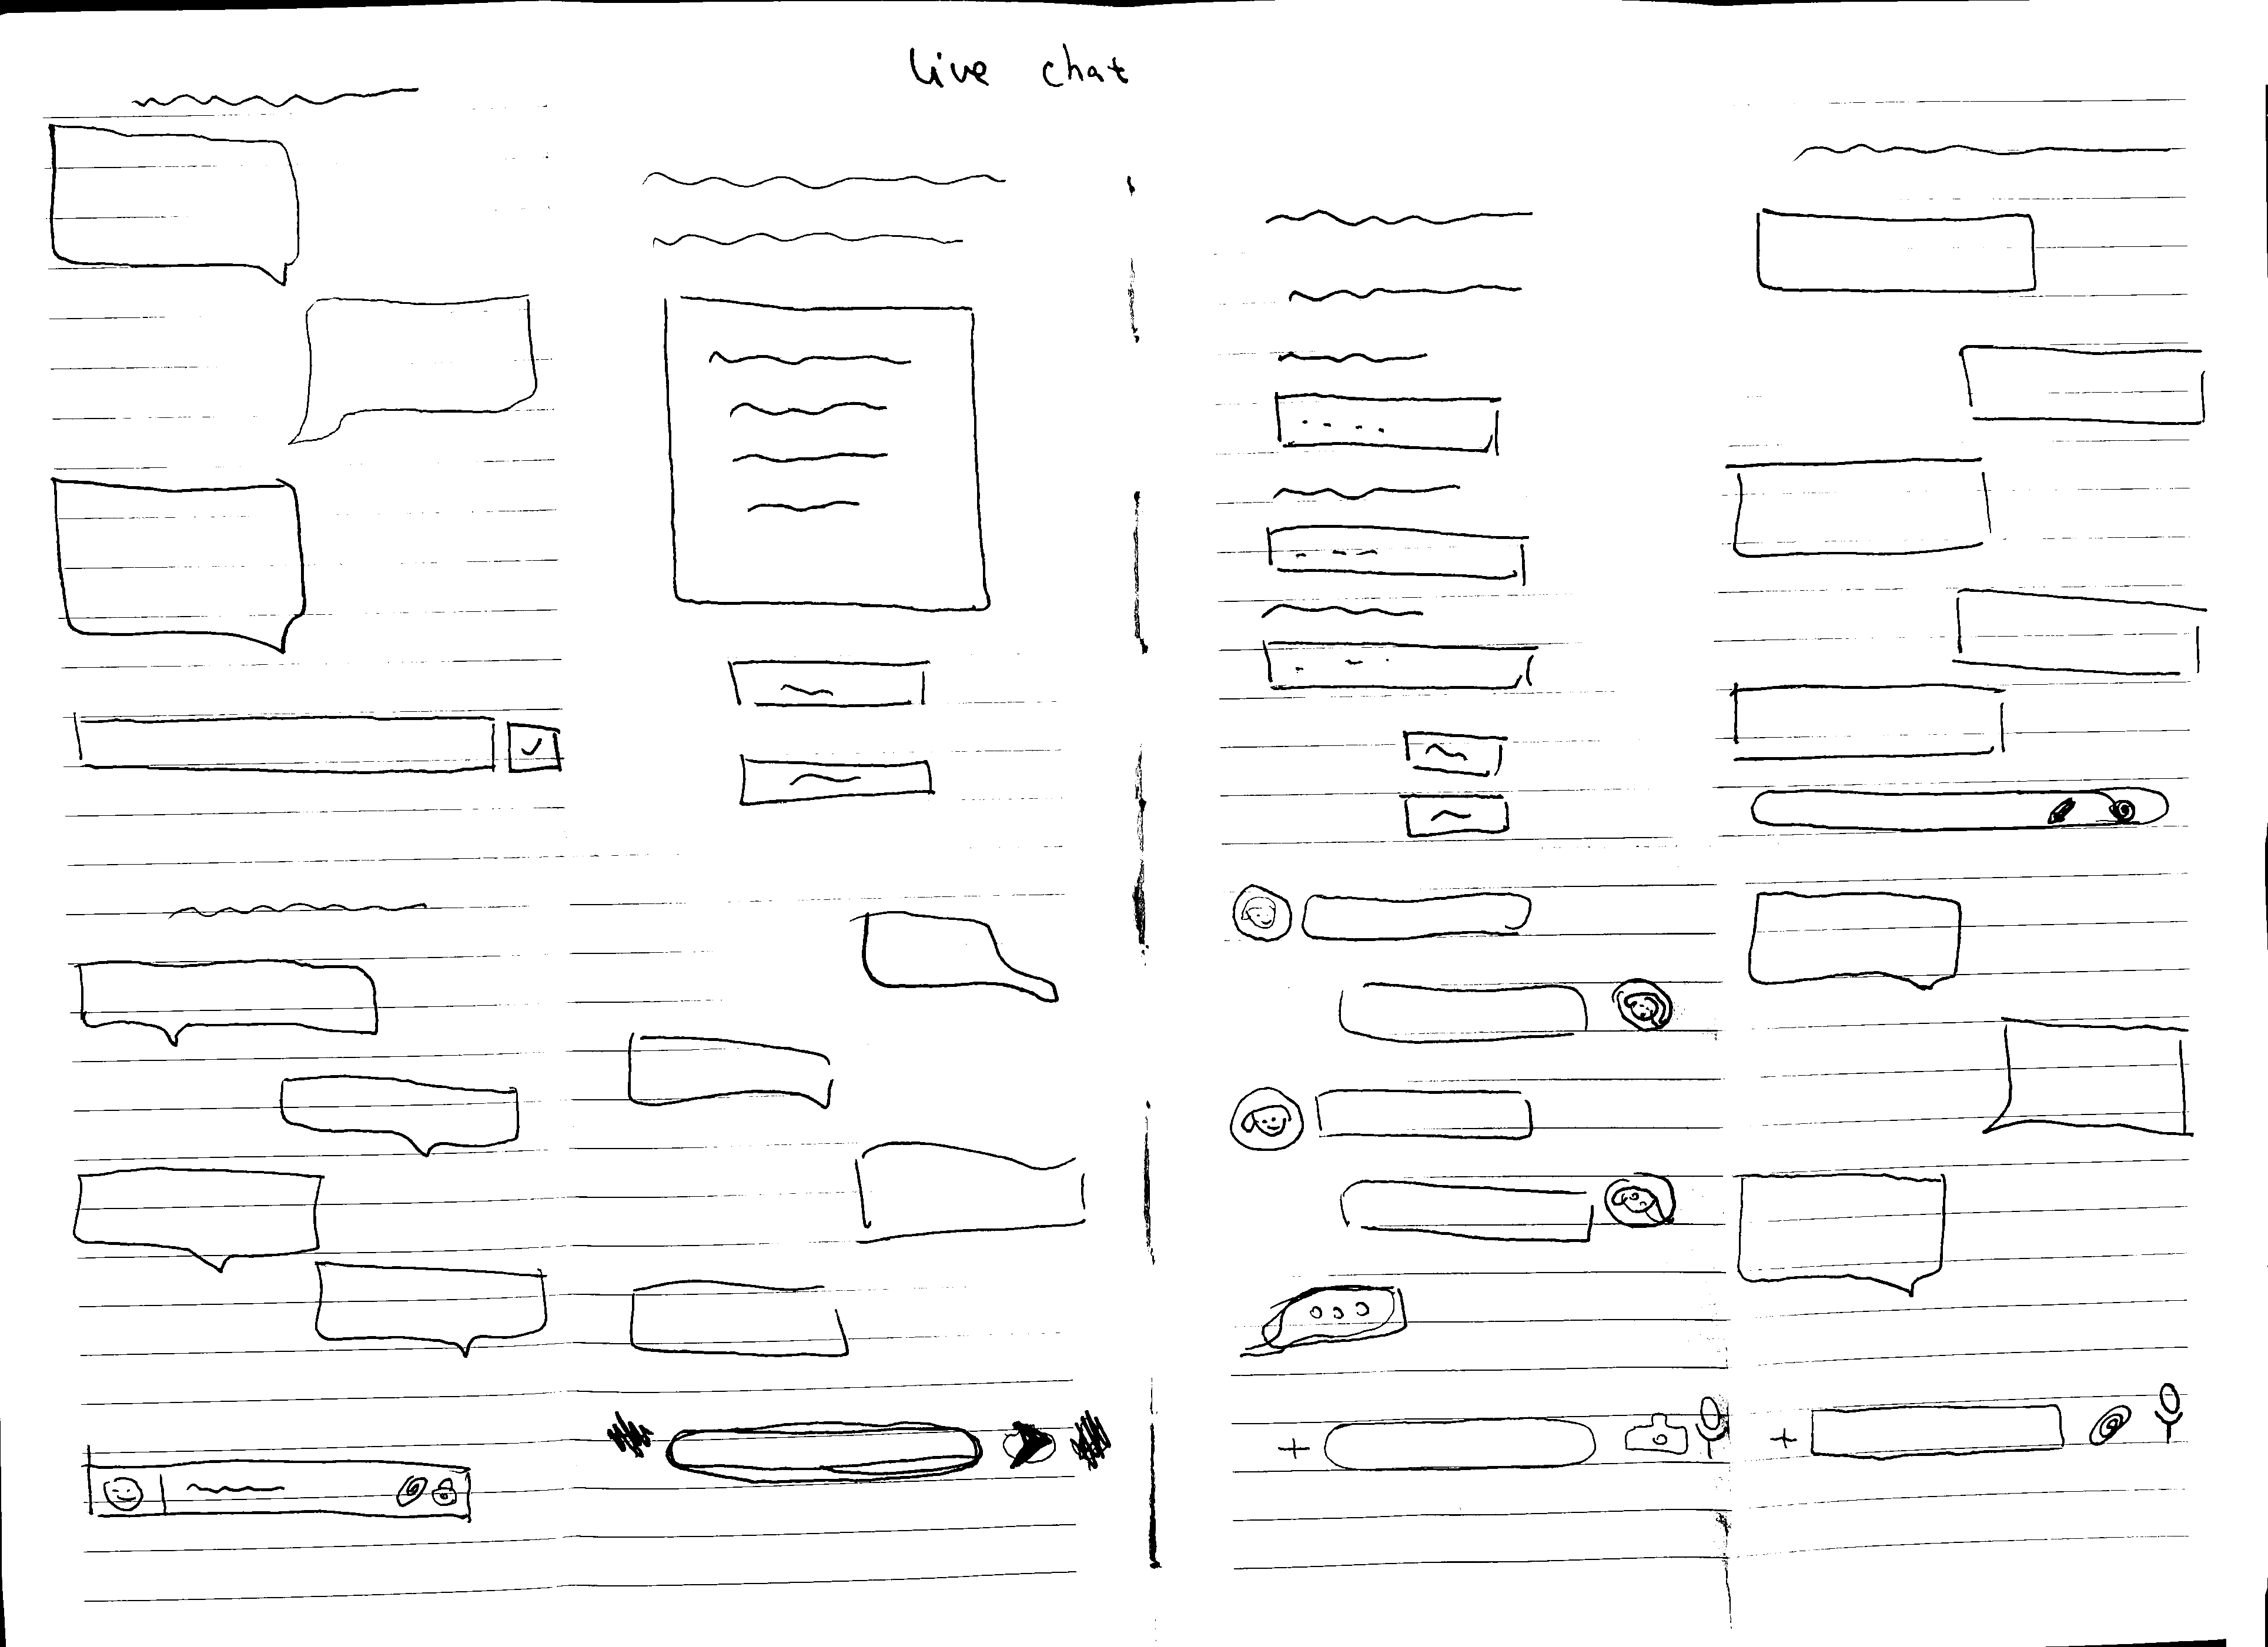 live chat